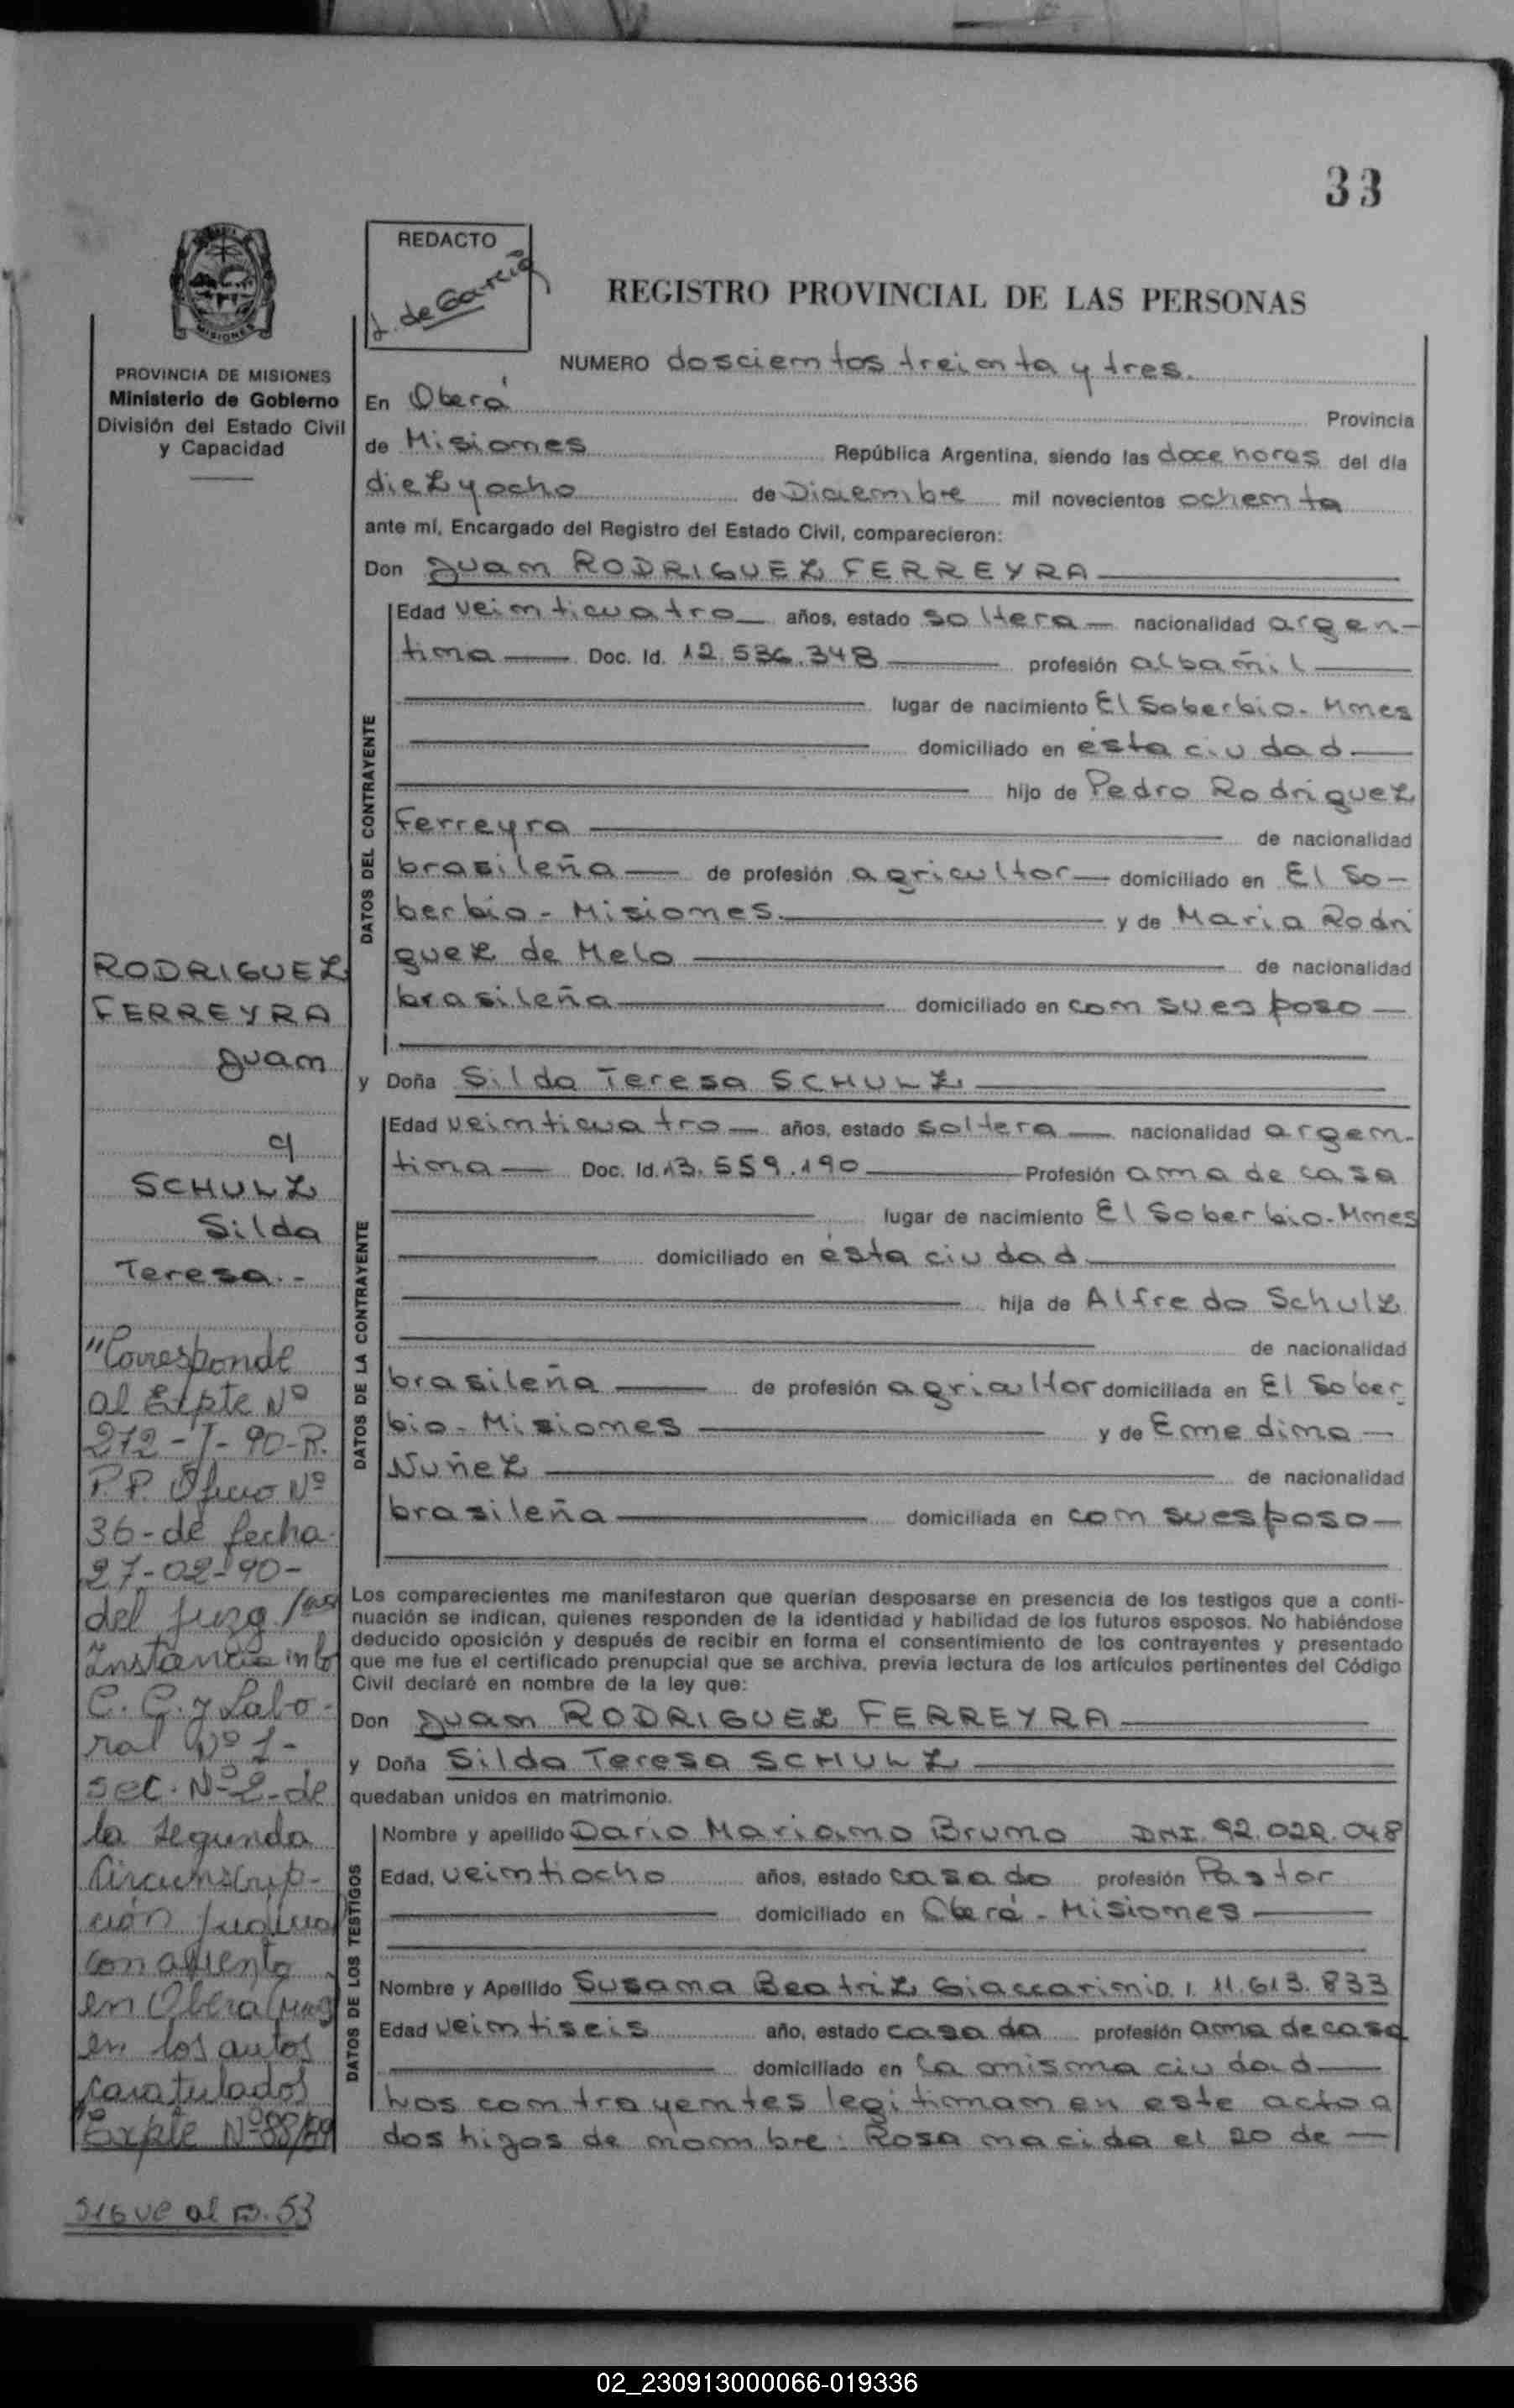 33
REDACTO
J. de Garcia
REGISTRO PROVINCIAL DE LAS PERSONAS
MISIONES
PROVINCIA DE MISIONES
Ministerio de Gobierno
División del Estado Civil
y Capacidad
NUMERO doscientos treinta y tres.
En Oberá Provincia
de Misiones República Argentina, siendo las doce horas del día
diez y ocho de Diciembre mil novecientos ochenta
ante mí, Encargado del Registro del Estado Civil, comparecieron:
Don Juan RODRIGUEZ FERREYRA
DATOS DEL CONTRAYENTE
Edad veinticuatro años, estado soltera nacionalidad argen-
tina Doc. Id. 12.536.348 profesión albañil
lugar de nacimiento El Soberbio - Mnes
domiciliado en ésta ciudad
hijo de Pedro Rodriguez
Ferreyra de nacionalidad
brasileña de profesión agricultor domiciliado en El So-
berbio - Misiones. y de Maria Rodri
guez de Melo de nacionalidad
brasileña domiciliado en con su esposo
y Doña Silda Teresa SCHULZ
DATOS DE LA CONTRAYENTE
Edad veinticuatro años, estado soltera nacionalidad argen-
tina Doc. Id. 13.559.190 Profesión ama de casa
lugar de nacimiento El Soberbio - Mnes
domiciliado en ésta ciudad
hija de Alfredo Schulz
de nacionalidad
brasileña de profesión agricultor domiciliada en El Sober
bio - Misiones y de Enedina
Nuñez de nacionalidad
brasileña domiciliada en con su esposo
Los comparecientes me manifestaron que querían desposarse en presencia de los testigos que a conti-
nuación se indican, quienes responden de la identidad y habilidad de los futuros esposos. No habiéndose
deducido oposición y después de recibir en forma el consentimiento de los contrayentes y presentado
que me fue el certificado prenupcial que se archiva, previa lectura de los artículos pertinentes del Código
Civil declaré en nombre de la ley que:
Don Juan RODRIGUEZ FERREYRA
y Doña Silda Teresa SCHULZ
quedaban unidos en matrimonio.
DATOS DE LOS TESTIGOS
Nombre y apellido Dario Mariano Bruno DNI. 92.022.048
Edad, veintiocho años, estado casado profesión Pastor
domiciliado en Oberá - Misiones
Nombre y Apellido Susana Beatriz Giaccarini D.I. 11.613.833
Edad veintiseis año, estado casada profesión ama de casa
domiciliado en la misma ciudad
Los contrayentes legitiman en este acto a
dos hijos de nombre: Rosa nacida el 20 de
RODRIGUEZ
FERREYRA
Juan
c/
SCHULZ
Silda
Teresa.-
"Corresponde
al Expte Nº
272-J-90-R.
P.P. Oficio Nº
36-de fecha
27-02-90-
del Juzg 1ra
Instancia en lo
C. C. y Labo-
ral Nº 1-
Sec. Nº 2-de
la Segunda
Circunscrip-
ción Judicial
con asiento
en Oberá
en los autos
caratulados
"Expte Nº 88/89
SIGUE al Fº. 53
02_230913000066-019336